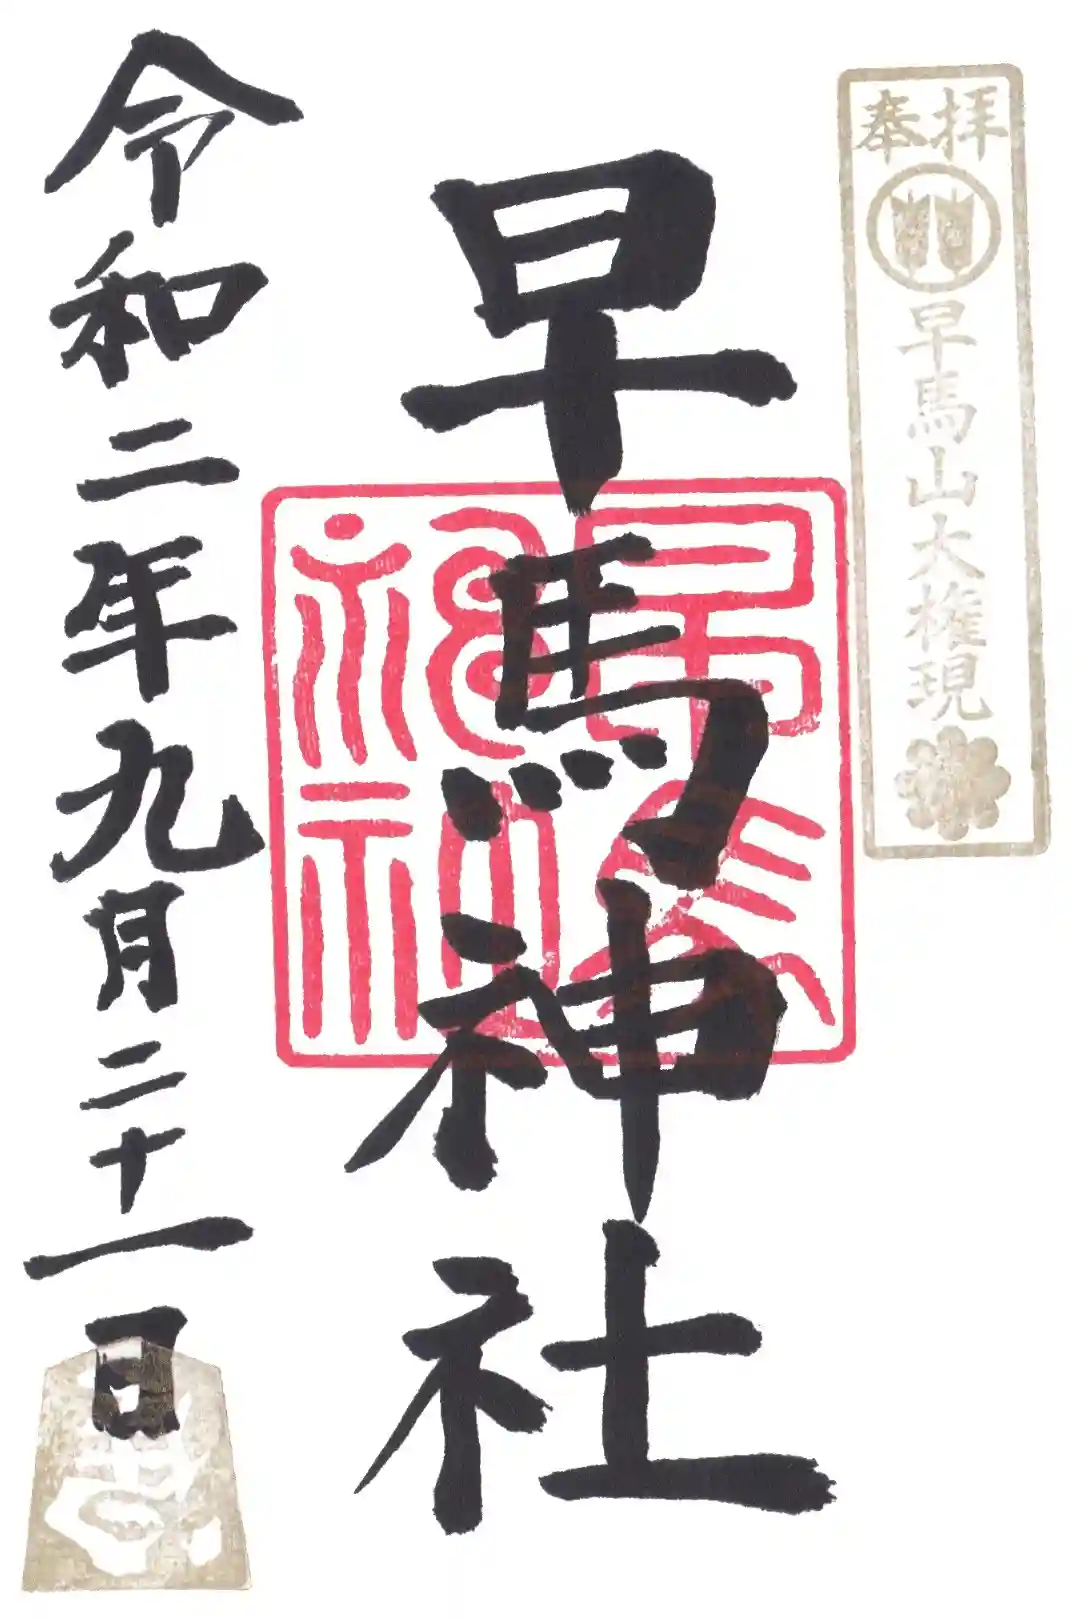 奉拝
早馬山大権現
早馬神社
早馬神社
令和二年九月二十一日